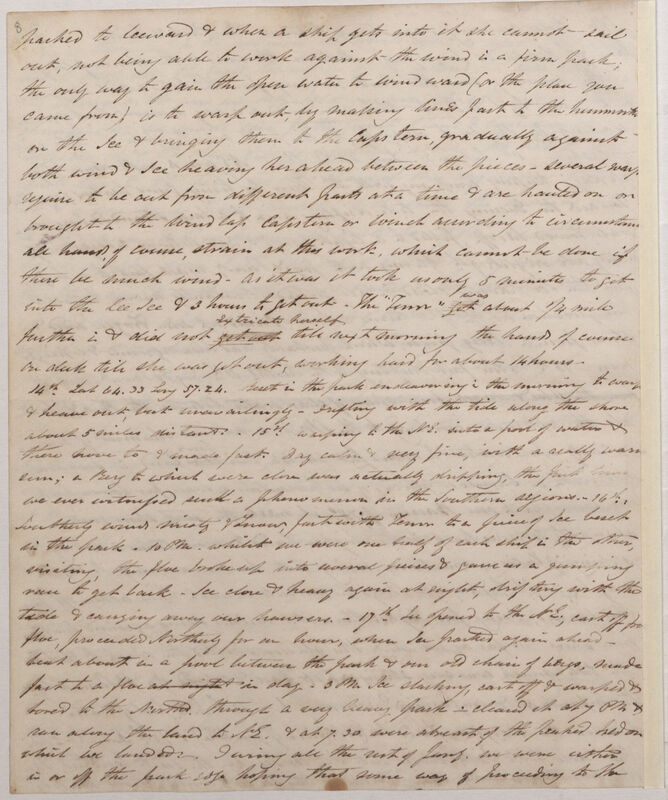 8
packed to leeward & when a ship gets into it she cannot sail
out, not being able to work against the wind in a firm pack;
the only way to gain the open water to windward (or the place you
came from) is to warp out, by making lines fast to the hummocks
on the Ice & bringing them to the Capstern, gradually against
both wind & Ice heaving her ahead between the pieces - several warps
require to be out from different parts at a time & are hauled on or
brought to the windlass Capstern or winch according to circumstances
all hands, of course, strain at this work, which cannot be done if
there be much wind - as it was it took us only 5 minutes to get
into the Lee Ice & 3 hours to get out - The "Terror" was about 1/4 mile
further in & did not extricate herself till next morning the hands of course
on deck till she was got out, working hard for about 14 hours -
14th Lat 64.33 Long 57.24. beset in the pack endeavoring in the morning to warp
& heave out, but unavailingly - drifting with the tide along the shore
about 5 miles distant. - 15th warping to the NE. into a pool of water &
there hove to & made fast. Day calm & very fine, with a really warm
sun; a Berg to which we were close was actually dripping, the first time
we ever witnessed such a phenomenon in the Southern regions. - 16th,
Southerly winds misty & snow, fast with Terror to a piece of Ice beset
in the pack - 10 PM. whilst we were one half of each ship in the other,
visiting, the floe broke up into several pieces & gave us a jumping
race to get back - Ice close & heavy again at night, drifting with the
tide & carrying away our hawsers. - 17th Ice opened to the NE, cast off from
floe, proceeded Northerly for an hour, when Ice packed again ahead -
beat about in a pool between the pack & our old chain of bergs, made
fast to a floe at night in day - 3 PM Ice slacking, cast off & warped &
bored to the Northd. through a very heavy pack - cleared it at 7 PM &
ran along the land to NE. & at 7.30 were abreast of the peaked Island on
which we landed. During all the rest of Jany. we were either
in or off the pack edge hoping that some way of proceeding to the